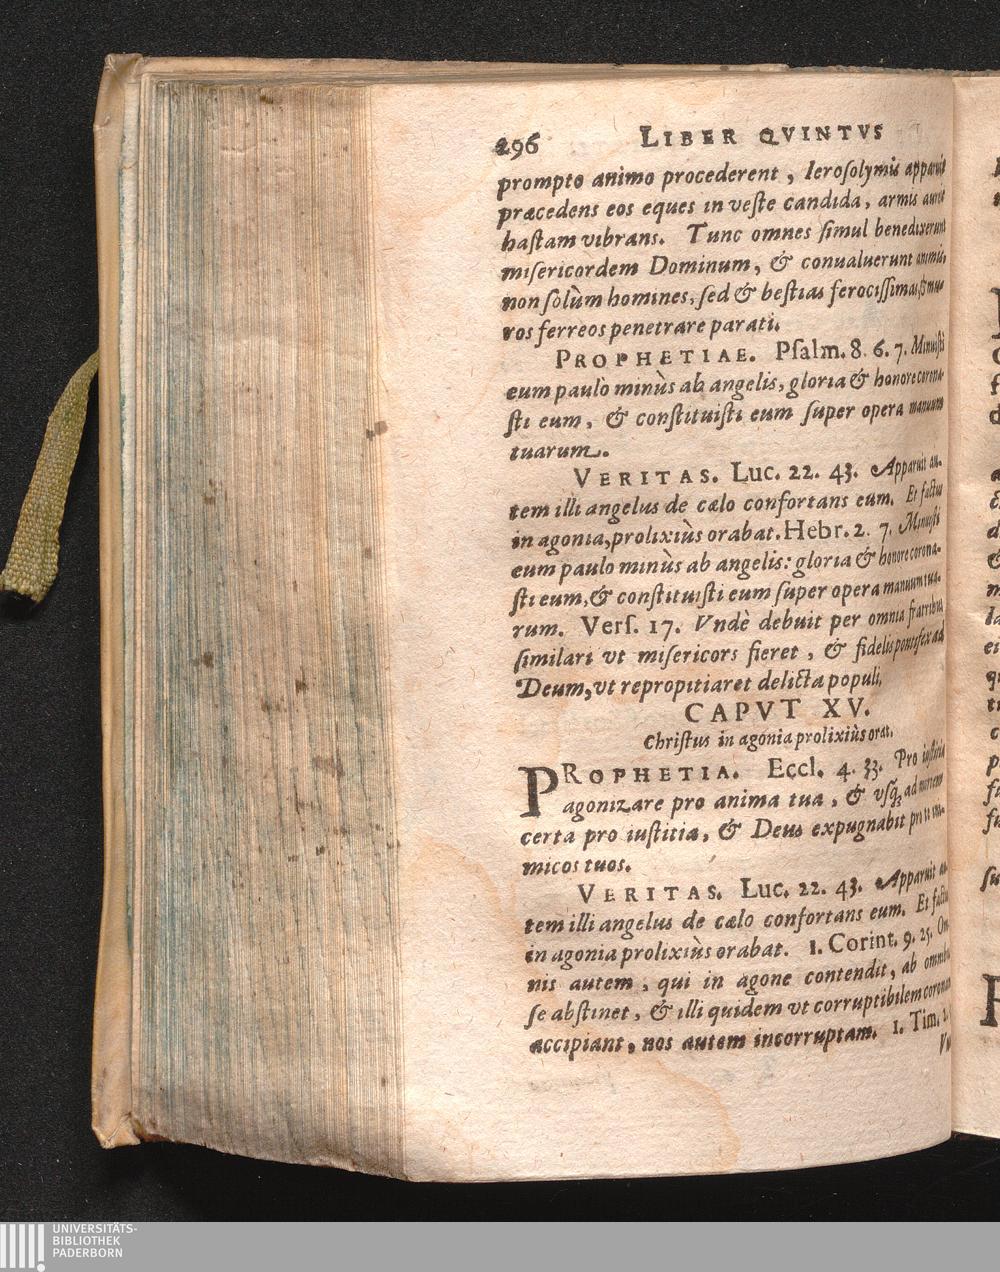 296 LIBER QVINTVS
prompto animo procederent, Ieroſolymis apparuit
præcedens eos eques in veſte candida, armis aureis
haſtam vibrans. Tunc omnes ſimul benedixerunt
miſericordem Dominum, & conualuerunt animis,
non ſolùm homines, ſed & beſtias ferociſſimas, & mu-
ros ferreos penetrare parati.
PROPHETIAE. Pſalm. 8. 6. 7. Minuiſti
eum paulò minùs ab angelis, gloria & honore corona-
ſti eum, & conſtituiſti eum ſuper opera manuum
tuarum.
VERITAS. Luc. 22. 43. Apparuit au-
tem illi angelus de cælo confortans eum. Et factus
in agonia, prolixiùs orabat. Hebr. 2. 7. Minuiſti
eum paulo minùs ab angelis: gloria & honore corona-
ſti eum, & conſtituiſti eum ſuper opera manuum tua-
rum. Verſ. 17. Vndè debuit per omnia fratribus
ſimilari vt miſericors fieret, & fidelis pontifex ad
Deum, vt repropitiaret delicta populi.
CAPVT XV.
Chriſtus in agonia prolixiùs orat.
PROPHETIA. Eccl. 4. 33. Pro iuſtitia
agonizare pro anima tua, & vſq; ad mortem
certa pro iuſtitia, & Deus expugnabit pro te ini-
micos tuos.
VERITAS. Luc. 22. 43. Apparuit au-
tem illi angelus de cælo confortans eum. Et factus
in agonia prolixiùs orabat. 1. Corint. 9. 25. Om-
nis autem, qui in agone contendit, ab omnibus
ſe abſtinet, & illi quidem vt corruptibilem coronam
accipiant, nos autem incorruptam. 1. Tim. 2.
UNIVERSITÄTS-
BIBLIOTHEK
PADERBORN